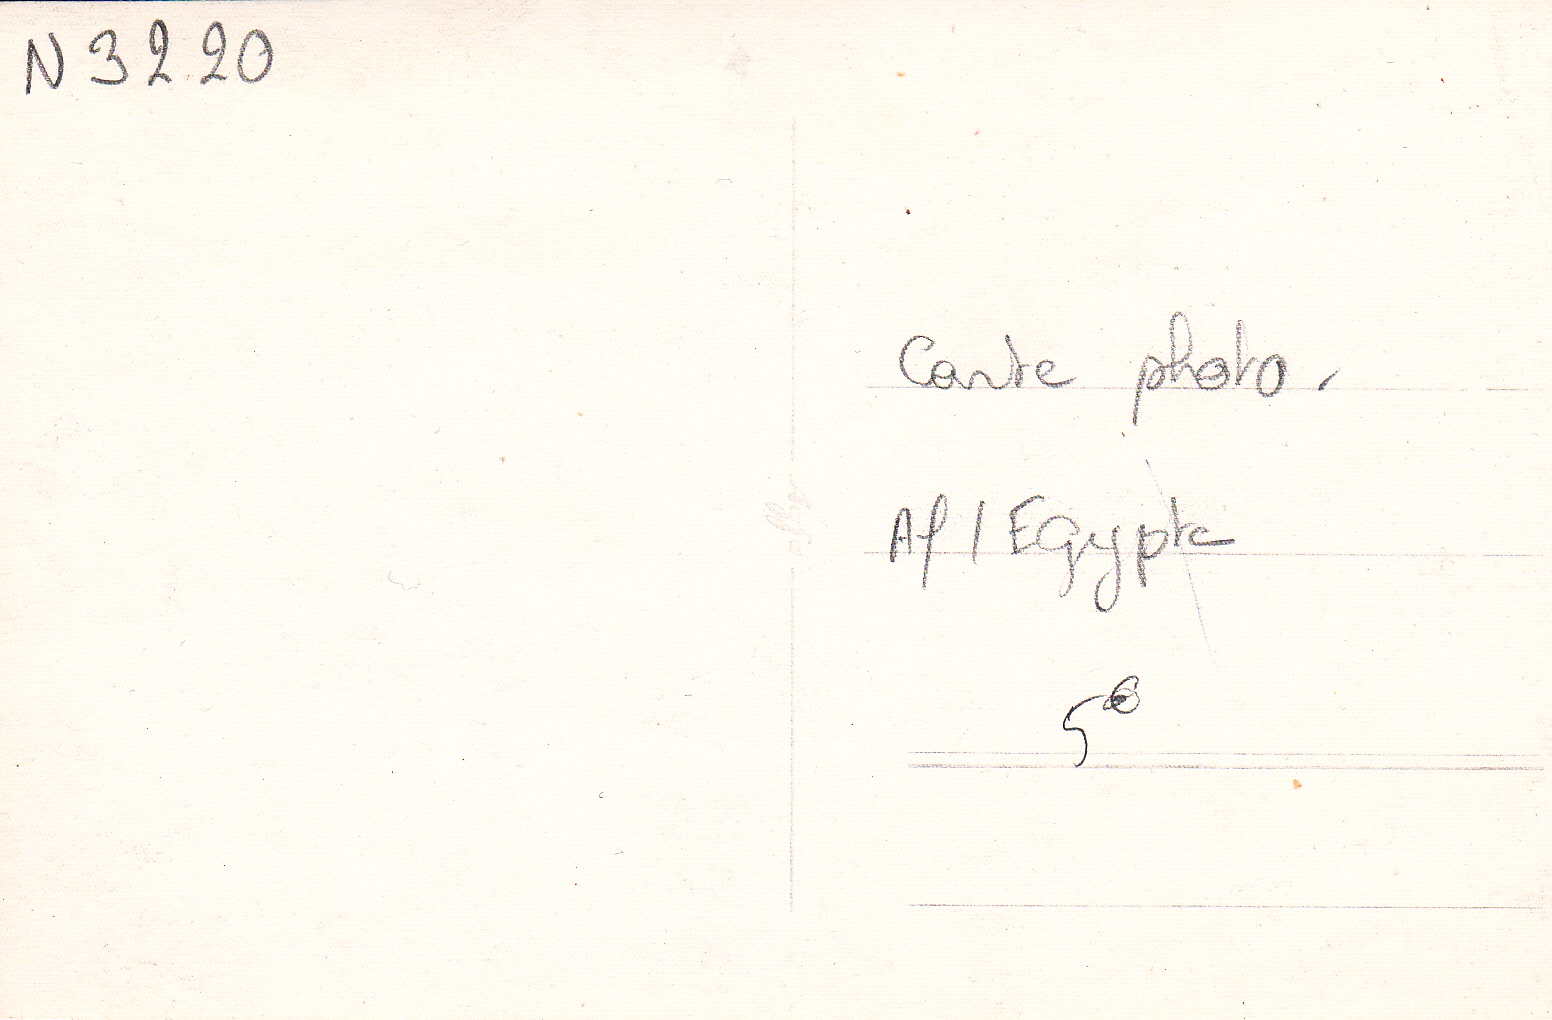 N 3220
Carte photo.
Af / Egypte
5€